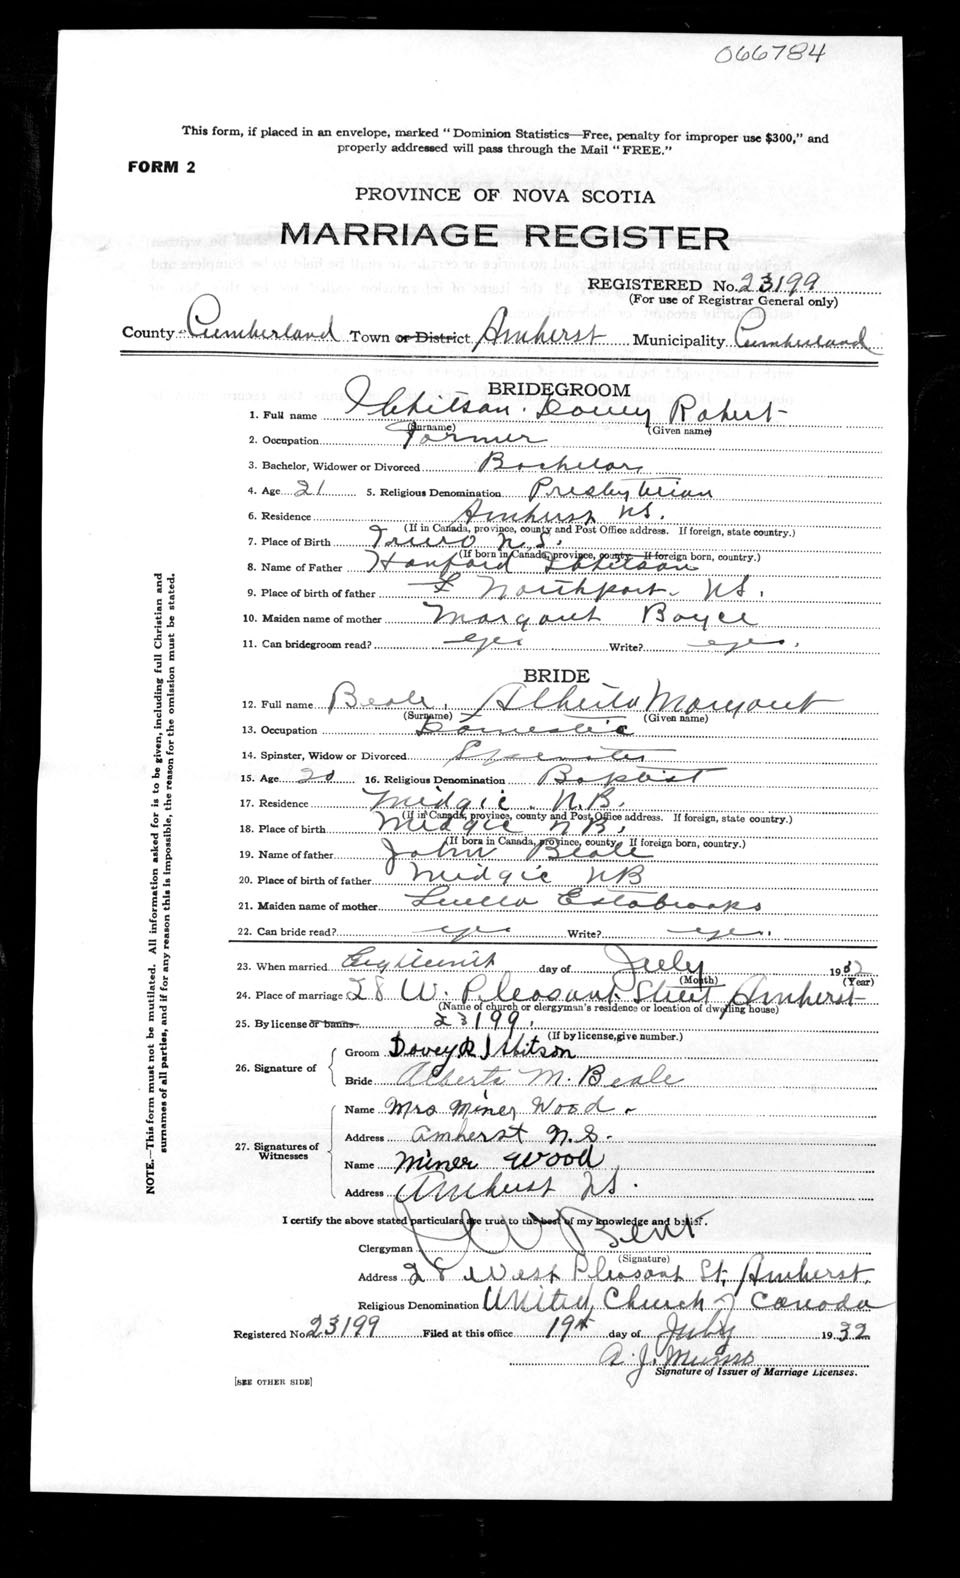 066784
This form, if placed in an envelope, marked "Dominion Statistics—Free, penalty for improper use $300," and
properly addressed will pass through the Mail "FREE."
FORM 2
PROVINCE OF NOVA SCOTIA
MARRIAGE REGISTER
REGISTERED No. 23199
(For use of Registrar General only)
County Cumberland Town or District Amherst Municipality Cumberland
BRIDEGROOM
1. Full name Robert
(Surname) (Given name)
2. Occupation Farmer
3. Bachelor, Widower or Divorced Bachelor
4. Age 21 5. Religious Denomination Presbyterian
6. Residence Amherst N.S.
(If in Canada, province, county and Post Office address. If foreign, state country.)
7. Place of Birth Truro N.S.
(If born in Canada, province, county. If foreign born, country.)
8. Name of Father Hanford
9. Place of birth of father Northport N.S.
10. Maiden name of mother Margaret Boyce
11. Can bridegroom read? yes Write? yes.
BRIDE
12. Full name Beale, Alberta Margaret
(Surname) (Given name)
13. Occupation Domestic
14. Spinster, Widow or Divorced Spinster
15. Age 20 16. Religious Denomination Baptist
17. Residence Midgic. N.B.
(If in Canada, province, county and Post Office address. If foreign, state country.)
18. Place of birth Midgic N.B.
(If born in Canada, province, county. If foreign born, country.)
19. Name of father John Beale
20. Place of birth of father Midgic NB
21. Maiden name of mother Luella Estabrooks
22. Can bride read? yes Write? yes.
23. When married Eighteenth day of July 1932
(Month) (Year)
24. Place of marriage 28 W. Pleasant Street Amherst
(Name of church or clergyman's residence or location of dwelling house)
25. By license or banns 23199.
(If by license, give number.)
26. Signature of
Groom Dovey R
Bride Alberta M. Beale
27. Signatures of Witnesses
Name Mrs Miner Wood
Address Amherst N.S.
Name Miner Wood
Address Amherst N.S.
I certify the above stated particulars are true to the best of my knowledge and belief.
Clergyman Bent
(Signature)
Address 28 West Pleasant St, Amherst.
Religious Denomination United Church of Canada
Registered No. 23199 Filed at this office 19th day of July 1932
A. J. Munro
Signature of Issuer of Marriage Licenses.
[SEE OTHER SIDE]
NOTE.—This form must not be mutilated. All information asked for is to be given, including full Christian and
surnames of all parties, and if for any reason this is impossible, the reason for the omission must be stated.